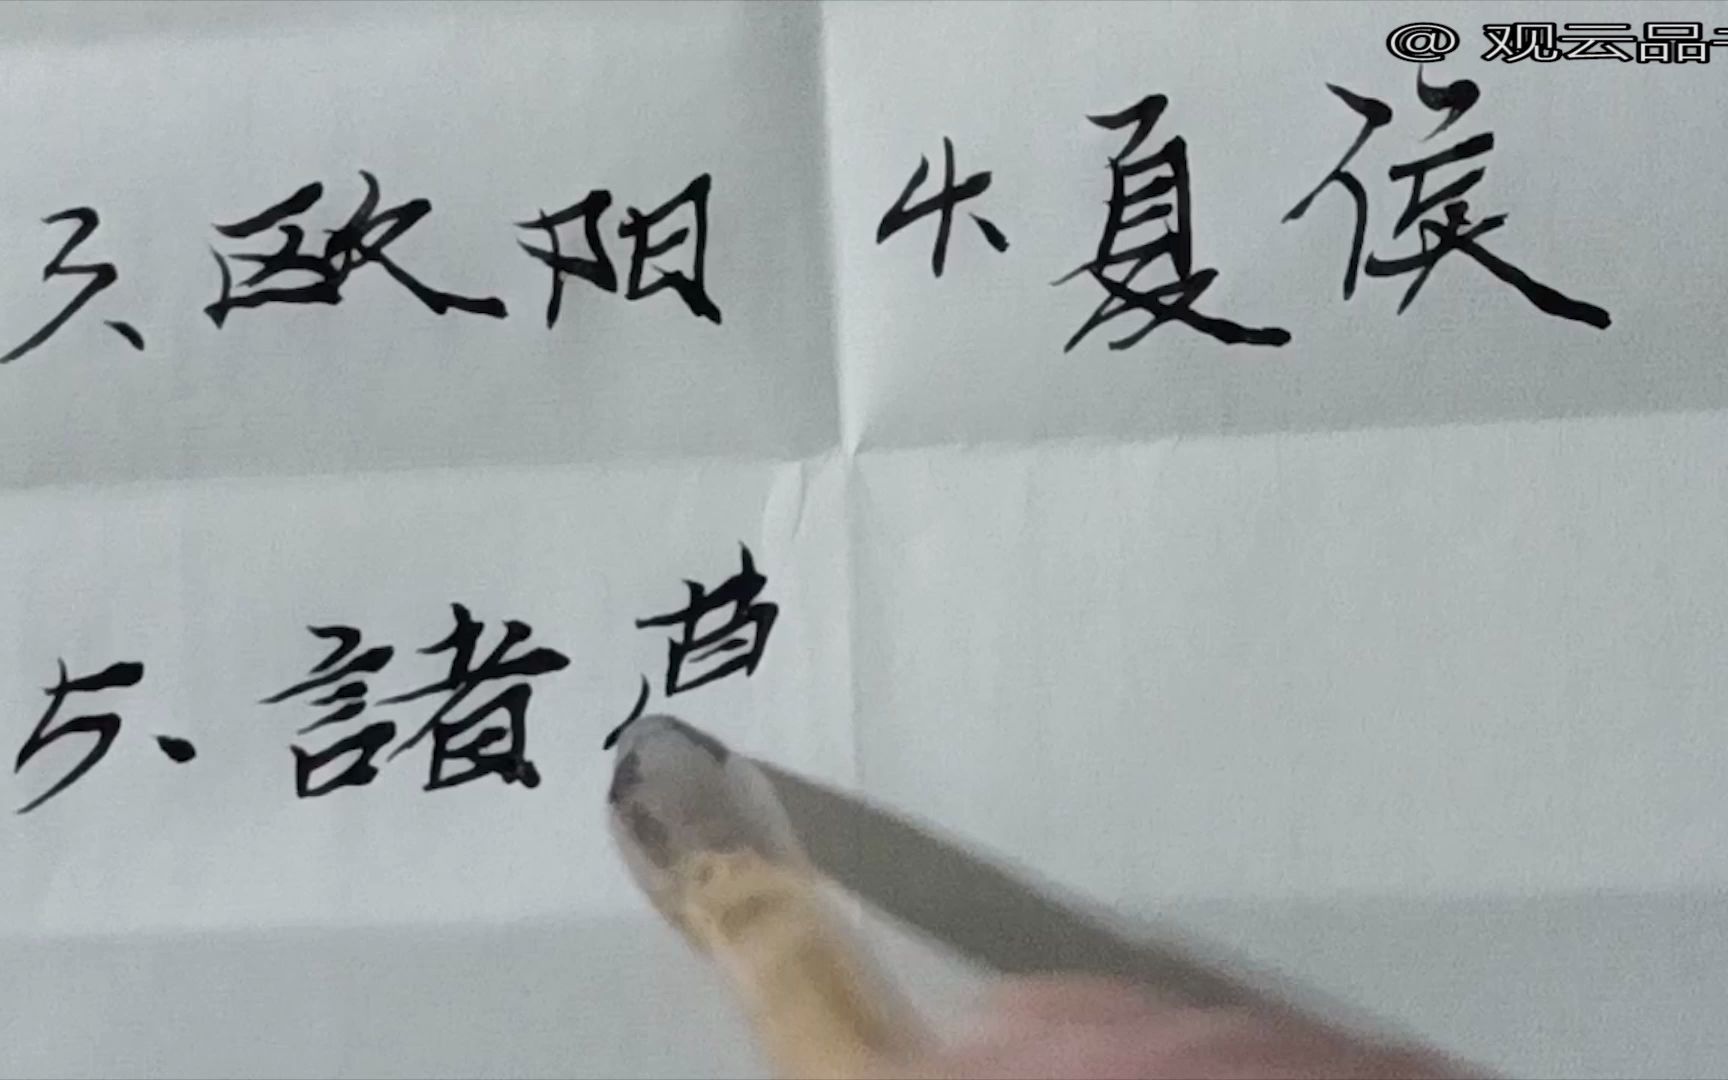 @ 观云品
3、欧阳 4、夏侯
5、諸